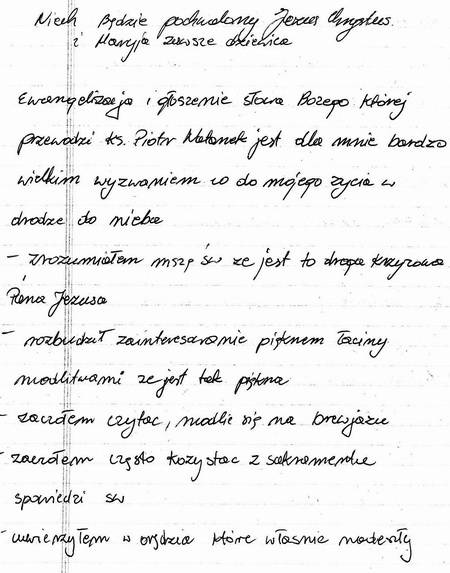 Niech Będzie pochwalony Jezus Chrystus
i Maryja zawsze dziewica
Ewangelizacja i głoszenie słowa Bożego której
przewodzi ks. Piotr Natanek jest dla mnie bardzo
wielkim wyzwaniem co do mojego życia w
drodze do nieba
- zrozumiałem mszę św ze jest to droga krzyrowa
Pana Jezusa
- rozbudził zainteresowanie pięknem łaciny
modlitwami ze jest tak piękna
- zaczołem czytac, modlic się na brewjazu
- zaczołem często kozystac z sakramentu
spowiedzi św
- uwierzyłem w orędzia które własnie nadeszły